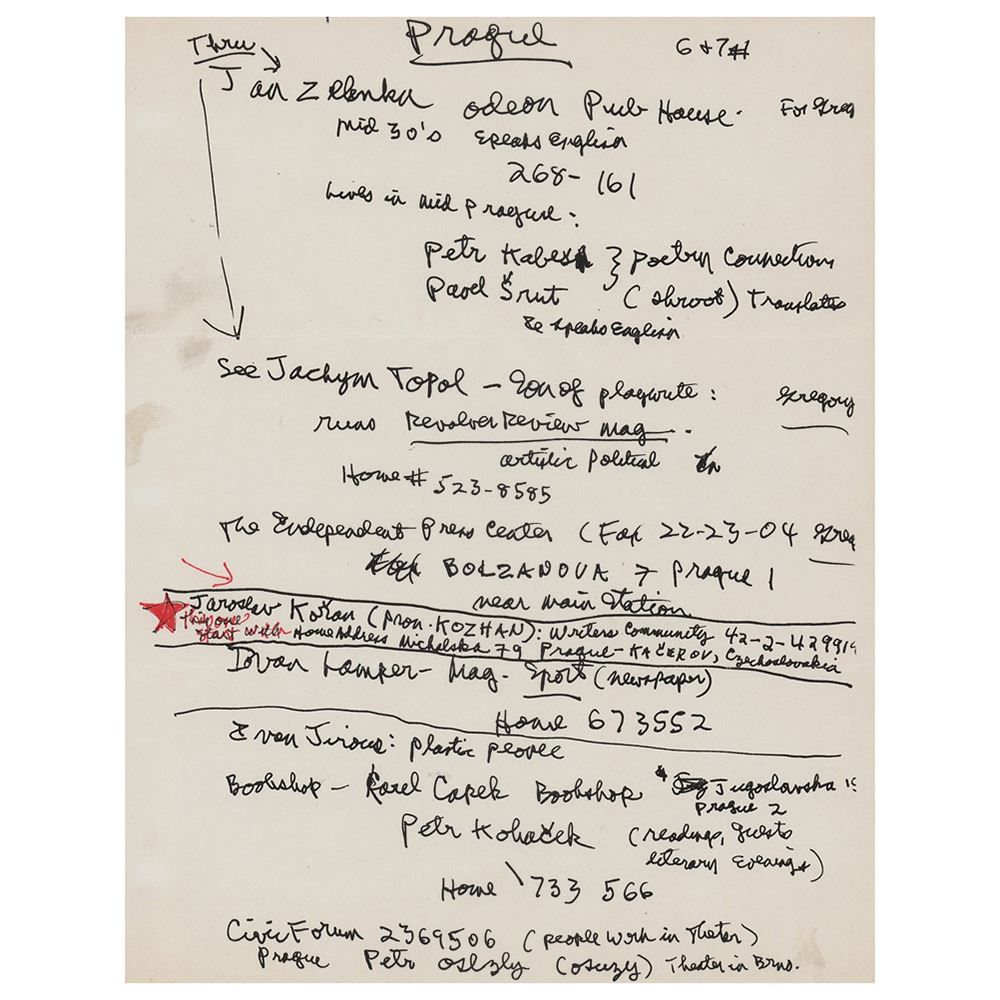 Thru
Prague
6 & 7#
Jan Zelenka odeon Pub House. For Greg
Mid 30's speaks english
268-161
Lives in mid prague.
Petr Kabes } poetry Connections
Pavel Šrut (Shroot) Translates
& speaks English
See Jachym Topol - Son of playwrite: Gregory
runs Revolver Review mag.
artistic Political
Home # 523-8585
The Independent Press Center (Fax 22-23-04 Greg
BOLZANOVA 7 Prague 1
near main Station
Jaroslav Kořan (pron. KOZHAN): Writers Community 42-2-429914
this one
start with Home Address Michelska 79 Prague - KAČEROV, Czechoslovakia
Ivan Lamper - Mag. Sport (newspaper)
Home 673552
Evan Jirous: plastic people
Bookshop - Karel Capek Bookshop Jugoslavska
Prague 2
Petr Kohaček (readings, guests
literary evenings)
Home 733 566
Civic Forum 2369506 (people work in Theter)
Prague Petr Oslzly (osuzy) Theater in Brno.